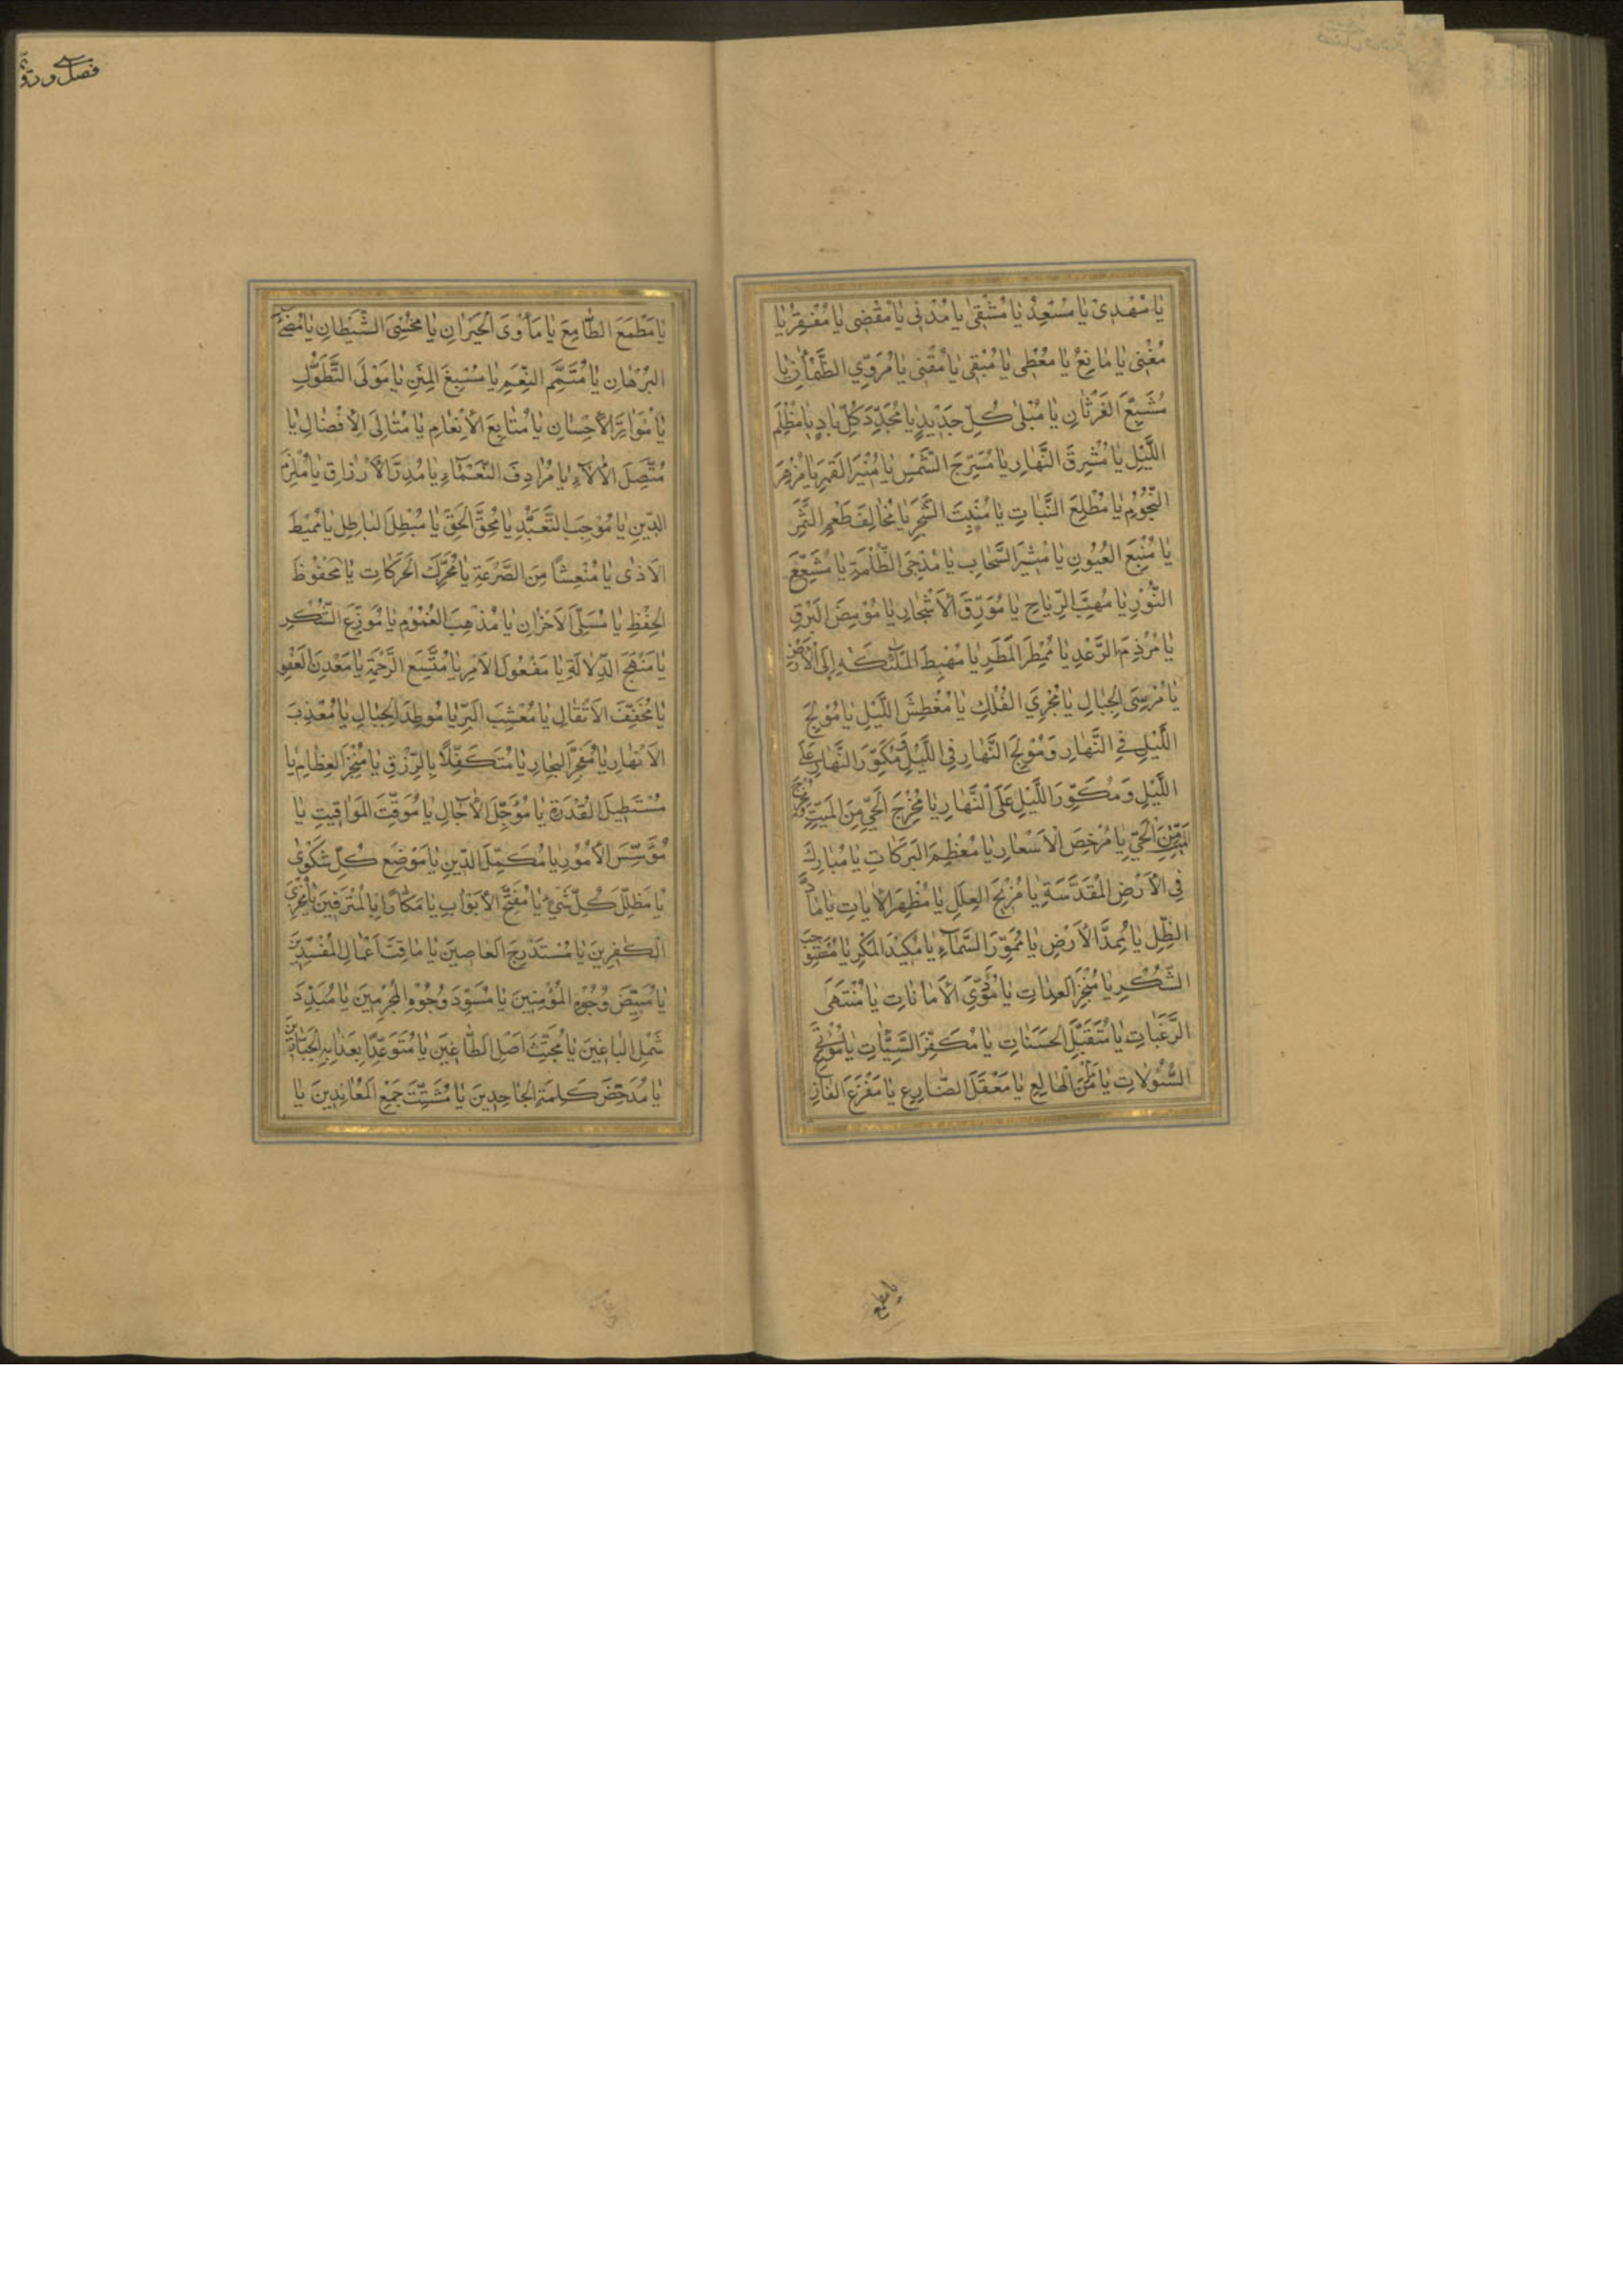 يَا مُهْدِي يَا مُسْعِدُ يَا مُشْقِي يَا مُدْنِي يَا مُقْضِي يَا مُفْقِرُ يَا
مُغْنِي يَا مَانِعُ يَا مُعْطِي يَا مُبْقِي يَا مُقْنِي يَا مُرَوِّي الظَّمْآنِ يَا
مُشَبِّعَ الغَرْثَانِ يَا مُبْلِي كُلِّ جَدِيدٍ يَا مُجَدِّدَ كُلِّ بَادٍ يَا مُظْلِمَ
اللَّيْلِ يَا مُشْرِقَ النَّهَارِ يَا مُسَرِّجَ الشَّمْسِ يَا مُنِيرَ القَمَرِ يَا مُزْهِرَ
النُّجُومِ يَا مُطْلِعَ النَّبَاتِ يَا مُنْبِتَ الشَّجَرِ يَا مُخَالِفَ طَعْمِ الثَّمَرِ
يَا مُنْبِعَ العُيُونِ يَا مُثِيرَ السَّحَابِ يَا مُدْجِيَ الظُّلْمَةِ يَا مُشَعْشِعَ
النُّورِ يَا مُهِبَّ الرِّيَاحِ يَا مُوَرِّقَ الأَشْجَارِ يَا مُومِضَ البَرْقِ
يَا مُرْزِمَ الرَّعْدِ يَا مُمْطِرَ المَطَرِ يَا مُهْبِطَ المَلَئِكَةِ إِلَى الأَرْضِ
يَا مُرْسِيَ الجِبَالِ يَا مُجْرِيَ الفُلْكِ يَا مُغْطِشَ اللَّيْلِ يَا مُولِجَ
اللَّيْلِ فِي النَّهَارِ وَمُولِجَ النَّهَارِ فِي اللَّيْلِ وَمُكَوِّرَ النَّهَارِ عَلَى
اللَّيْلِ وَمُكَوِّرَ اللَّيْلِ عَلَى النَّهَارِ يَا مُخْرِجَ الحَيِّ مِنَ المَيِّتِ وَمُخْرِجَ
المَيِّتِ مِنَ الحَيِّ يَا مُرْخِصَ الأَسْعَارِ يَا مُعْظِمَ البَرَكَاتِ يَا مُبَارِكَ
فِي الأَرْضِ المُقَدَّسَةِ يَا مُزِيحَ العِلَلِ يَا مُظْهِرَ الآيَاتِ يَا مَادَّ
الظِّلِّ يَا مُمِدَّ الأَرْضِ يَا مُمَوِّرَ السَّمَاءِ يَا مُكِيدَ المَكْرِ يَا مُسْتَوْجِبَ
الشُّكْرِ يَا مُنْجِزَ العِدَاتِ يَا مُؤَدِّيَ الأَمَانَاتِ يَا مُنْتَهَى
الرَّغَبَاتِ يَا مُتَقَبِّلَ الحَسَنَاتِ يَا مُكَفِّرَ السَّيِّئَاتِ يَا مُؤْتِيَ
السُّؤُلَاتِ يَا مَأْمَنَ الهَالِعِ يَا مَعْقَلَ الضَّارِعِ يَا مَفْزَعَ الفَازِعِ
يَا مطمع
فصل ورق
يَا مَطْمَعَ الطَّامِعِ يَا مَأْوَى الحَيْرَانِ يَا مُخْسِئَ الشَّيْطَانِ يَا مُضِيءَ
البُرْهَانِ يَا مُتَمِّمَ النِّعَمِ يَا مُسْبِغَ المِنَنِ يَا مَوْلَى التَّطَوُّلِ
يَا مُوَاتِرَ الأِحْسَانِ يَا مُتَابِعَ الأَنْعَامِ يَا مُتَالِيَ الأِفْضَالِ يَا
مُتَّصِلَ الآلَاءِ يَا مُرَادِفَ النَّعْمَاءِ يَا مُدِرَّ الأَرْزَاقِ يَا مُلْزِمَ
الدِّينِ يَا مُوجِبَ التَّعَبُّدِ يَا مُحِقَّ الحَقِّ يَا مُبْطِلَ البَاطِلِ يَا مُمِيطَ
الأَذَى يَا مُنْعِشًا مِنَ الصَّرْعَةِ يَا مُحَرِّكَ الحَرَكَاتِ يَا مَحْفُوظَ
الحِفْظِ يَا مُسَلِّيَ الأَحْزَانِ يَا مُذْهِبَ الغُمُومِ يَا مُوزِعَ الشُّكْرِ
يَا مَنْهَجَ الدِّلَالَةِ يَا مَفْعُولَ الأَمْرِ يَا مُتَّسِعَ الرَّحْمَةِ يَا مَعْدِنَ العَفْوِ
يَا مُخَفِّفَ الأَثْقَالِ يَا مُعْشِبَ البَرِّ يَا مُوَطِّدَ الجِبَالِ يَا مُعْذِبَ
الأَنْهَارِ يَا مُفَجِّرَ البِحَارِ يَا مُتَكَفِّلاً بِالرِّزْقِ يَا مُنْخِرَ العِظَامِ يَا
مُسْتَطِيلَ القُدْرَةِ يَا مُؤَجِّلَ الآجَالِ يَا مُوَقِّتَ المَوَاقِيتِ يَا
مُؤَسِّسَ الأُمُورِ يَا مُكَمِّلَ الدِّينِ يَا مَوْضِعَ كُلِّ شَكْوَى
يَا مُظِلَّ كُلِّ شَيْءٍ يَا مُفَتِّحَ الأَبْوَابِ يَا مَكَّارًا بِالمُتْرَفِينَ يَا مُخْزِيَ
الكَفِرِينَ يَا مُسْتَدْرِجَ العَاصِينَ يَا مَاقِتَ أَعْمَالِ المُفْسِدِينَ
يَا مُبَيِّضَ وُجُوهِ المُؤْمِنِينَ يَا مُسَوِّدَ وُجُوهِ المُجْرِمِينَ يَا مُبَدِّدَ
شَمْلِ البَاغِينَ يَا مُجْتَثَّ أَصْلِ الطَّاغِينَ يَا مُتَوَعِّدًا بِعَذَابِهِ الجَبَّارِينَ
يَا مُدْحِضَ كَلِمَةِ الجَاحِدِينَ يَا مُشَتِّتَ جَمْعِ المُعَانِدِينَ يَا